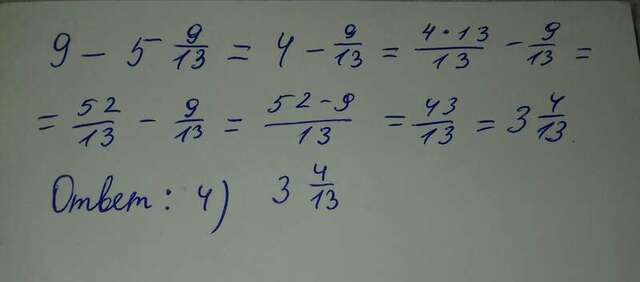 9 - 5 9/13 = 4 - 9/13 = 4·13/13 - 9/13 =
= 52/13 - 9/13 = 52-9/13 = 43/13 = 3 4/13.
Ответ: 4) 3 4/13